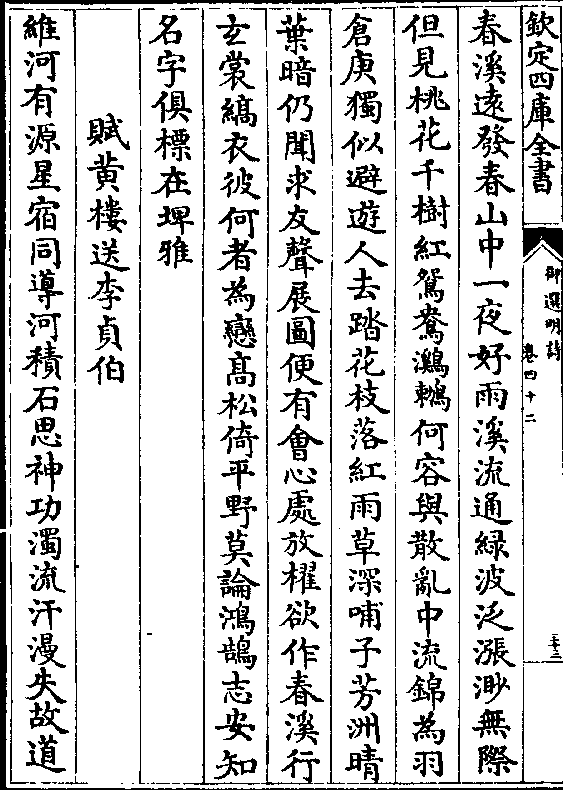 欽定四庫全書
御選明詩
卷四十二
三十二
春溪遠發春山中一夜好雨溪流通緑波泛漲渺無際
但見桃花千樹紅鴛鴦鸂鶒何容與散亂中流錦為羽
倉庚獨似避遊人去踏花枝落紅雨草深哺子芳洲晴
葉暗仍聞求友聲展圖便有會心處放櫂欲作春溪行
玄裳縞衣彼何者為戀髙松倚平野莫論鴻鵠志安知
名字俱標在埤雅
賦黄樓送李貞伯
維河有源星宿同導河積石思神功濁流汗漫失故道